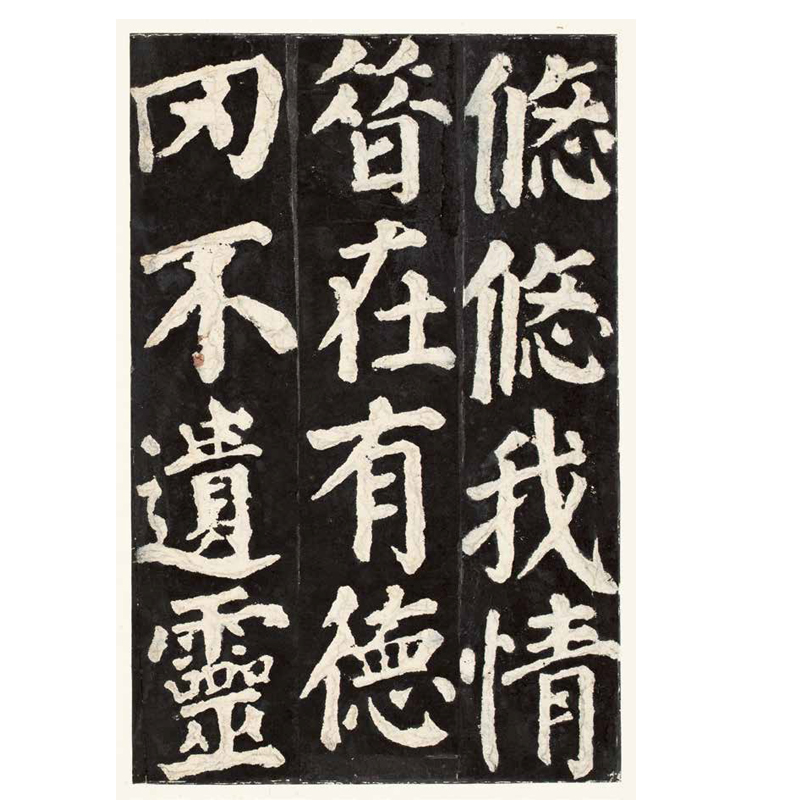 悠悠我情
昔在有德
罔不遺靈